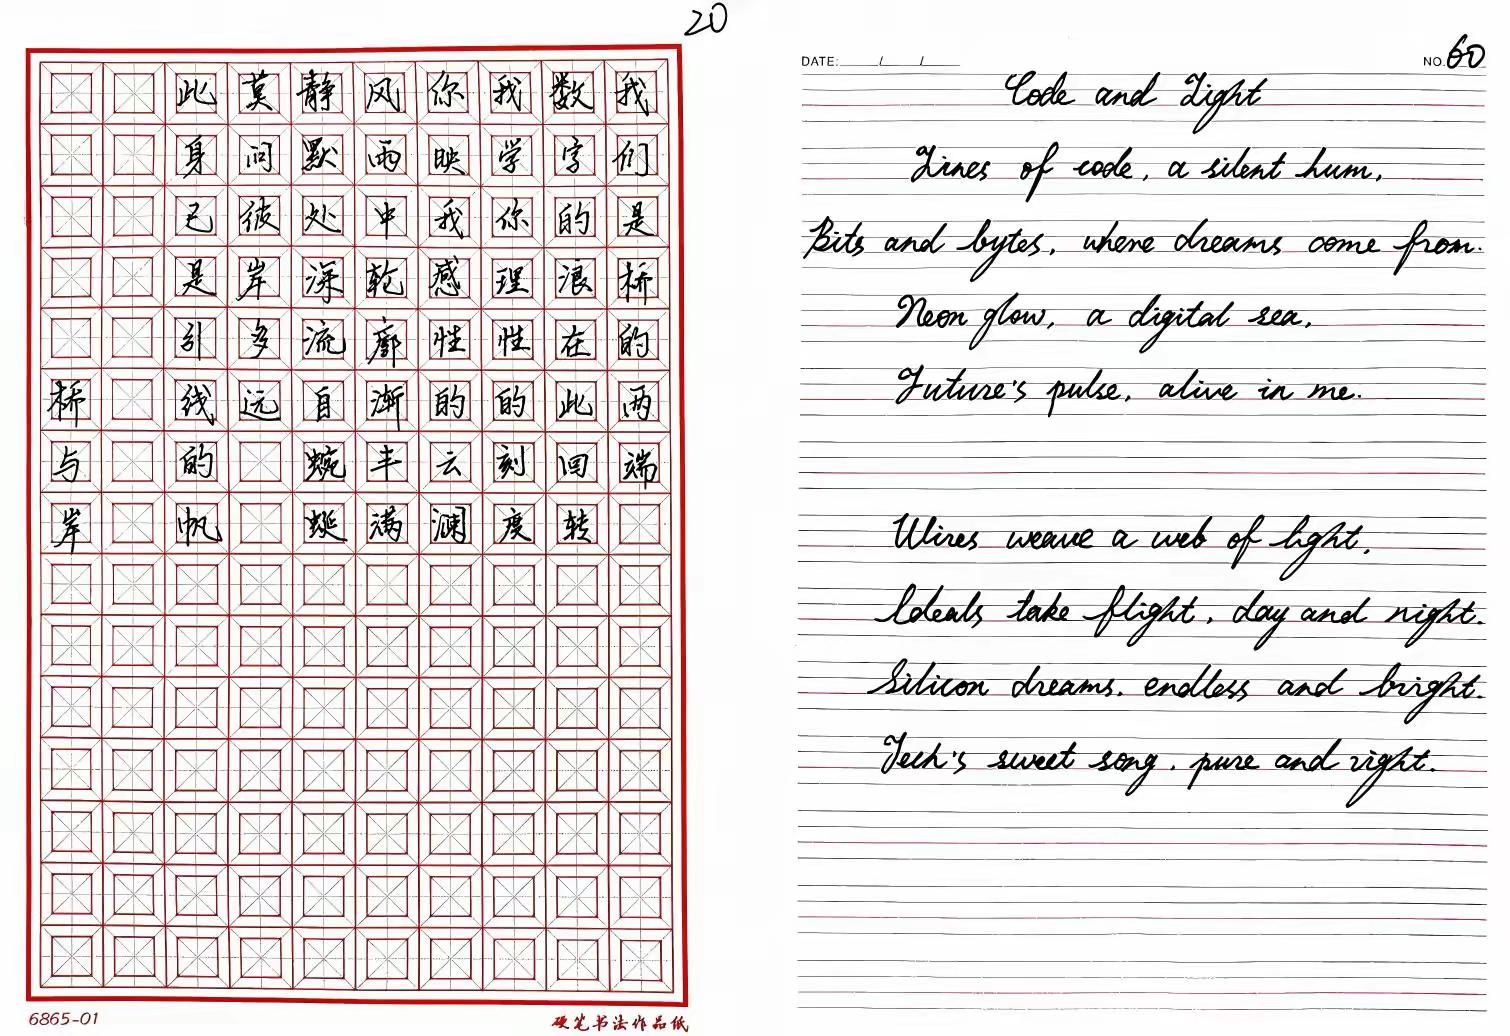 20
我们是桥的两端
数字的浪在此回转
我学你理性的刻度
你映我感性的云澜
风雨中轮廓渐丰满
静默处深流自蜿蜒
莫问彼岸多远
此身已是引线的帆
桥与岸
6865-01
硬笔书法作品纸
DATE: / /
NO. 60
Code and Light
Lines of code, a silent hum,
Bits and bytes, where dreams come from.
Neon glow, a digital sea,
Future's pulse, alive in me.
Wires weave a web of light,
Ideals take flight, day and night.
Silicon dreams, endless and bright.
Tech's sweet song, pure and right.